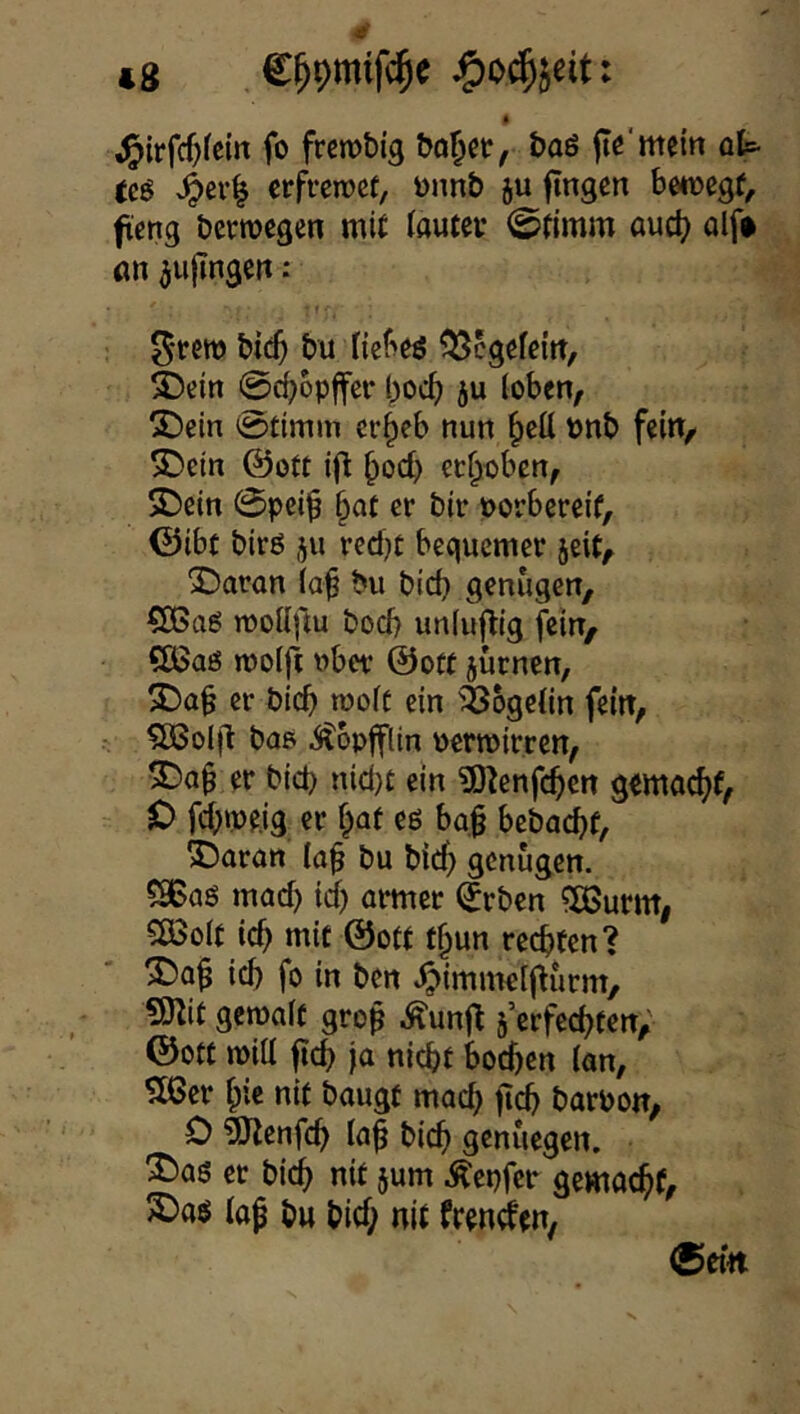 18 Chymische Hochzeit:
Hirschlein so frewdig daher, das sie mein al-
tes Hertz erfrewet, vnnd zu singen bewegt,
fieng derwegen mit lauter Stimm auch also
an zusingen:
Frew dich du liebes Vögelein,
Dein Schöpffer hoch zu loben,
Dein Stimm erheb nun hell vnd fein,
Dein Gott ist hoch erhoben,
Dein Speiß hat er dir vorbereit,
Gibt dirs zu recht bequemer zeit,
Daran laß du dich genügen,
Was wollstu doch unlustig sein,
Was wolst vber Gott zürnen,
Daß er dich wolt ein Vögelin sein,
Wolst das Köpfflin verwirren,
Daß er dich nicht ein Menschen gemacht,
O schweig er hat es daß bedacht,
Daran laß du dich genügen.
Was mach ich armer Erden Wurm,
Wolt ich mit Gott thun rechten?
Daß ich so in den Himmelstürm,
Mit gewalt groß Kunst z'erfechten,
Gott will sich ja nicht bochen lan,
Wer hie nit daugt mach sich darvon,
O Mensch laß dich genüegen.
Das er dich nit zum Keyser gemacht,
Das laß du dich nit krencken,
Sein